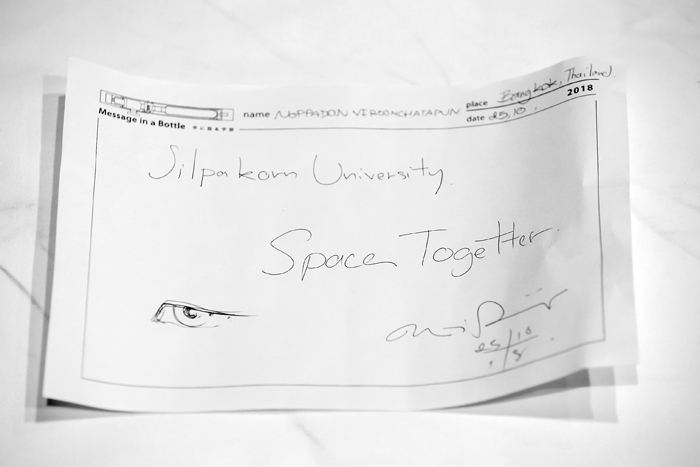 name NOPPADON VIROONCHATAPUN place Bangkok, Thailand.
Message in a Bottle date 25,10. 2018
Silpakorn University.
Space Togetter.
25/10
18